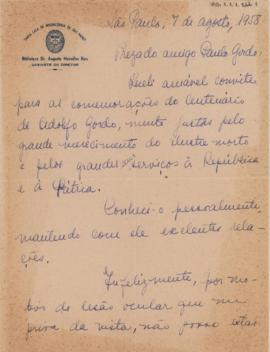 SANTA CASA DE MISERICORDIA DE SÃO PAULO
Biblioteca Dr. Augusto Meirelles Reis
GABINETE DO DIRETOR
São Paulo, 7 de agosto, 1958
Prezado amigo Paulo Gordo.
amável convite
para as comemorações do centenário
de Adolfo Gordo, muito justas pelo
grande merecimento do ilustre morto
e pelos grandes serviços à República
e à Pátria.
Conheci-o pessoalmente,
mantendo com ele excelentes rela-
ções.
Infelizmente, por mo-
tivos de lesão ocular que me
priva da vista, não posso estar